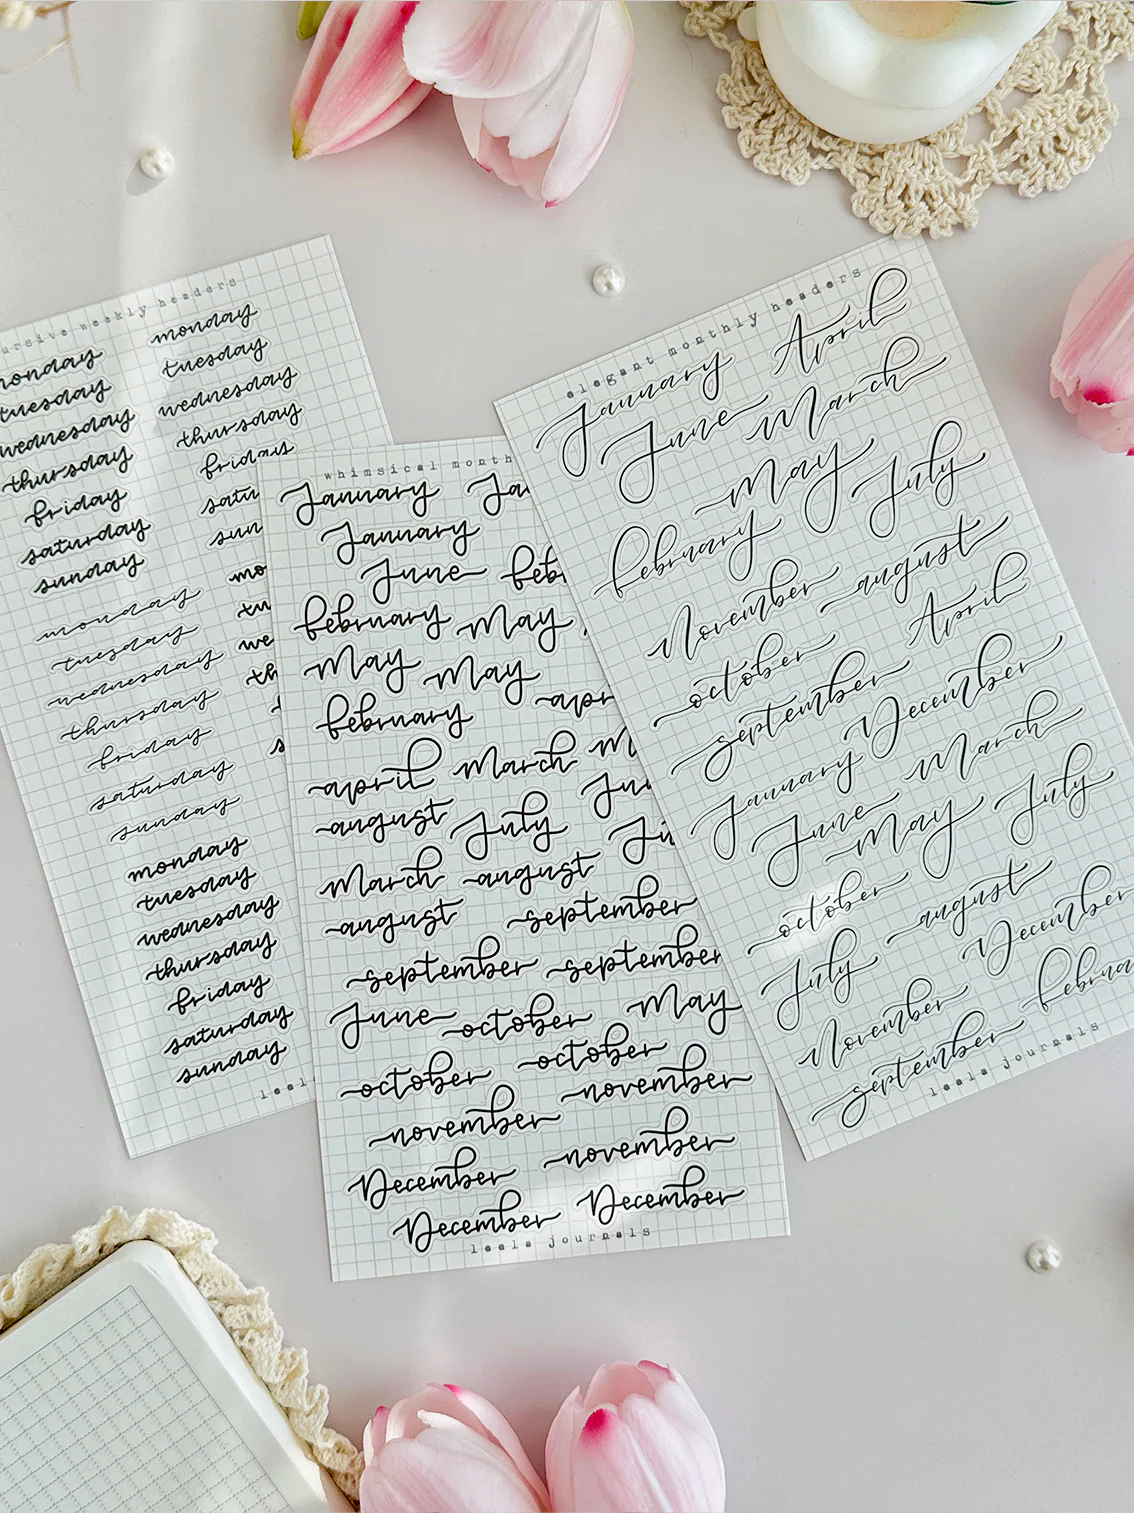 weekly headers
monday
tuesday
wednesday
thursday
friday
saturday
sunday
monday
tuesday
wednesday
thursday
friday
saturday
sunday
monday
tuesday
wednesday
thursday
friday
saturday
sunday
monday
tuesday
wednesday
thursday
friday
whimsical
January
January
June
february May
May May
february
april March
august July
March august
august september
september september
June october May
october october
november november
november
December
December December
leela journals
elegant monthly headers
January April
June March
May July
february
November august
october April
september December
January March
June May July
october august
July December
November
september
leela journals